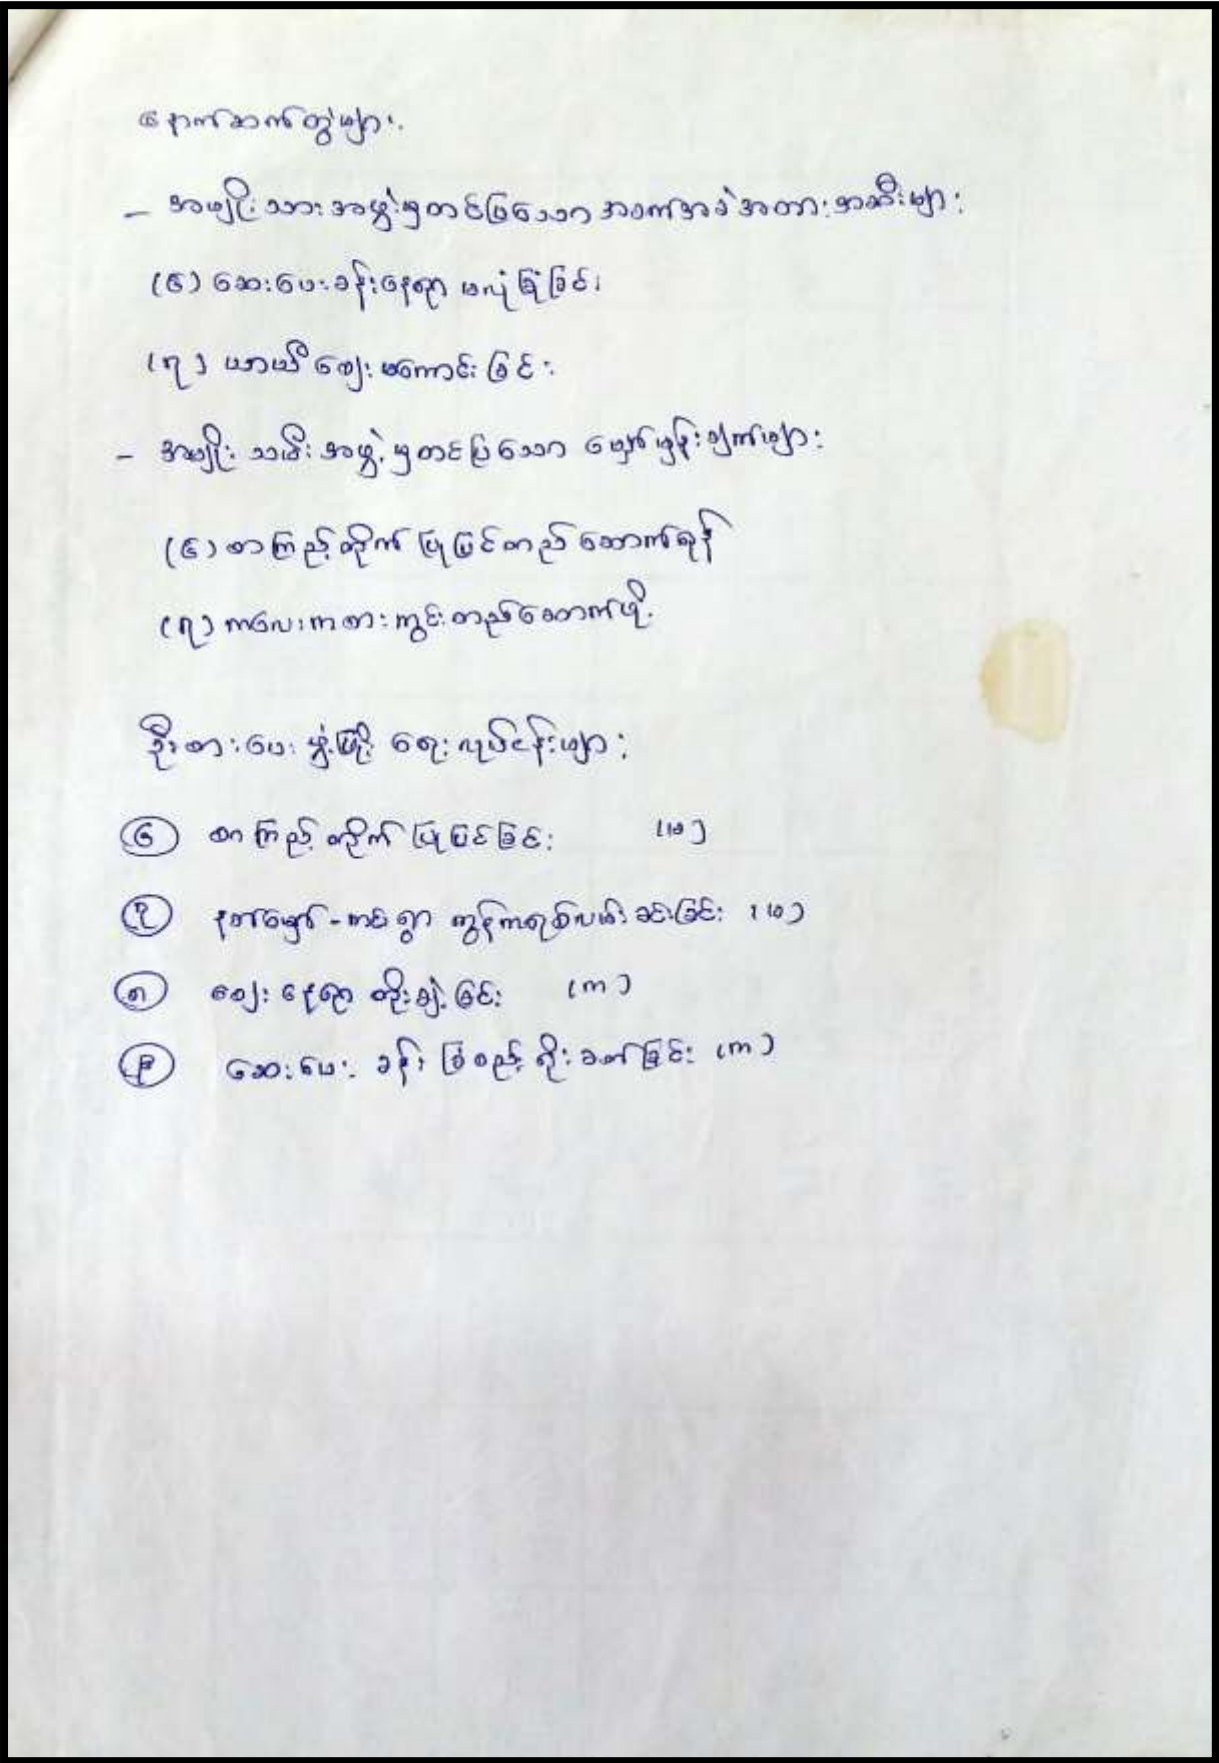 နောက်ဆက်တွဲများ.
- အမျိုးသားအဖွဲ့မှတင်ပြသော အခက်အခဲအတားအဆီးများ
(၆) ဆေးပေးခန်းနေရာ မလုံခြုံခြင်း
(၇) ယာယီဈေး မကောင်းခြင်း
- အမျိုးသမီးအဖွဲ့မှတင်ပြသော မျှော်မှန်းချက်များ
(၆) စာကြည့်တိုက် ပြုပြင်တည်ဆောက်ရန်
(၇) ကလေးကစားကွင်းတည်ဆောက်ဖို့.
ဦးစားပေး ဖွံ့ဖြိုးရေးလုပ်ငန်းများ
၆ စာကြည့်တိုက် ပြုပြင်ခြင်း (မ)
၇ နတ်မျှော် - ကင်းရွာ ကွန်ကရစ်လမ်းခင်းခြင်း (မ)
၈ ဈေးနေရာ တိုးချဲ့ခြင်း (က)
၉ ဆေးပေးခန်း ခြံစည်းရိုးခတ်ခြင်း (က)